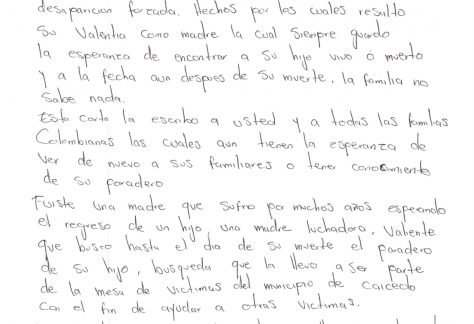 desaparicion forzada. Hechos por los cuales resalto
su Valentia como madre la cual siempre guardo
la esperanza de encontrar a su hijo vivo ó muerto
y a la fecha aun despues de su muerte, la familia no
sabe nada.
Esta carta la escribo a usted y a todas las familias
Colombianas las cuales aun tienen la esperanza de
ver de nuevo a sus familiares o tener conocimiento
de su paradero
Fuiste una madre que sufrio por muchos años esperando
el regreso de un hijo, una madre luchadora, valiente
que busco hasta el dia de su muerte el paradero
de su hijo, busqueda que la llevo a ser parte
de la mesa de victimas del municipio de Caicedo
con el fin de ayudar a otras victimas.